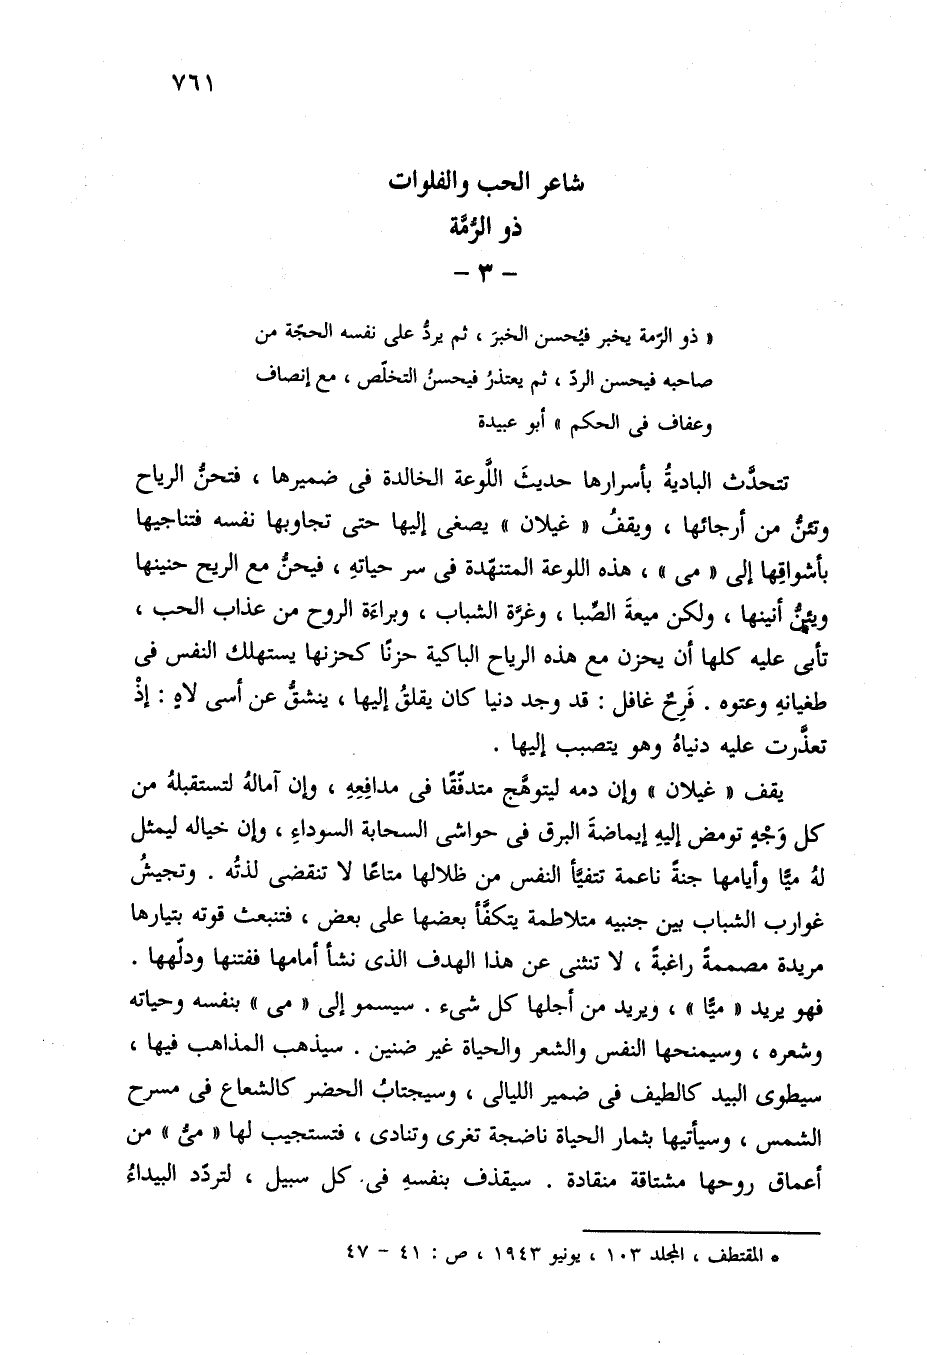 ٧٦١
شاعر الحب والفلوات
ذو الرُّمَّة
– ٣ –
« ذو الرّمة يخبر فيُحسن الخبرَ ، ثم يردُّ على نفسه الحجّة من
صاحبه فيحسن الردّ ، ثم يعتذرُ فيحسنُ التخلّص ، مع إنصاف
وعفاف فى الحكم » أبو عبيدة
تتحدَّث الباديةُ بأسرارها حديثَ اللَّوعة الخالدة فى ضميرها ، فتحنُّ الرياح
وتئنُّ من أرجائها ، ويقفُ « غيلان » يصغى إليها حتى تجاوبها نفسه فتناجيها
بأشواقِها إلى « مى » ، هذه اللوعة المتنهّدة فى سر حياتهِ ، فيحنُّ مع الريح حنينها
ويئنُّ أنينها ، ولكن ميعةَ الصِّبا ، وغرَّة الشباب ، وبراءَة الروح من عذاب الحب ،
تأبى عليه كلها أن يحزن مع هذه الرياح الباكية حزنًا كحزنها يستهلك النفس فى
طغيانهِ وعتوه . فَرِحٌ غافل : قد وجد دنيا كان يقلقُ إليها ، ينشقُّ عن أسى لاهٍ : إذْ
تعذَّرت عليه دنياهُ وهو يتصبب إليها .
يقف « غيلان » وإن دمه ليتوهَّج متدفّقًا فى مدافِعِهِ ، وإن آمالهُ لتستقبلهُ من
كل وَجْهٍ تومض إليهِ إيماضةَ البرق فى حواشى السحابة السوداءِ ، وإن خياله ليمثل
لهُ ميًّا وأيامها جنةً ناعمة تتفيَّأ النفس من ظلالها متاعًا لا تنقضى لذتُه . وتجيشُ
غوارب الشباب بين جنبيه متلاطمة يتكفَّأ بعضها على بعض ، فتنبعث قوته بتيارها
مريدة مصممةً راغبةً ، لا تنثنى عن هذا الهدف الذى نشأ أمامها ففتنها ودلّهها .
فهو يريد « ميًّا » ، ويريد من أجلها كل شىء . سيسمو إلى « مى » بنفسه وحياته
وشعره ، وسيمنحها النفس والشعر والحياة غير ضنين . سيذهب المذاهب فيها ،
سيطوى البيد كالطيف فى ضمير الليالى ، وسيجتابُ الحضر كالشعاع فى مسرح
الشمس ، وسيأتيها بثمار الحياة ناضجة تغرى وتنادى ، فتستجيب لها « مىُّ » من
أعماق روحها مشتاقة منقادة . سيقذف بنفسهِ فى كل سبيل ، لتردّد البيداءُ
* المقتطف ، المجلد ١٠٣ ، يونيو ١٩٤٣ ، ص : ٤١ – ٤٧